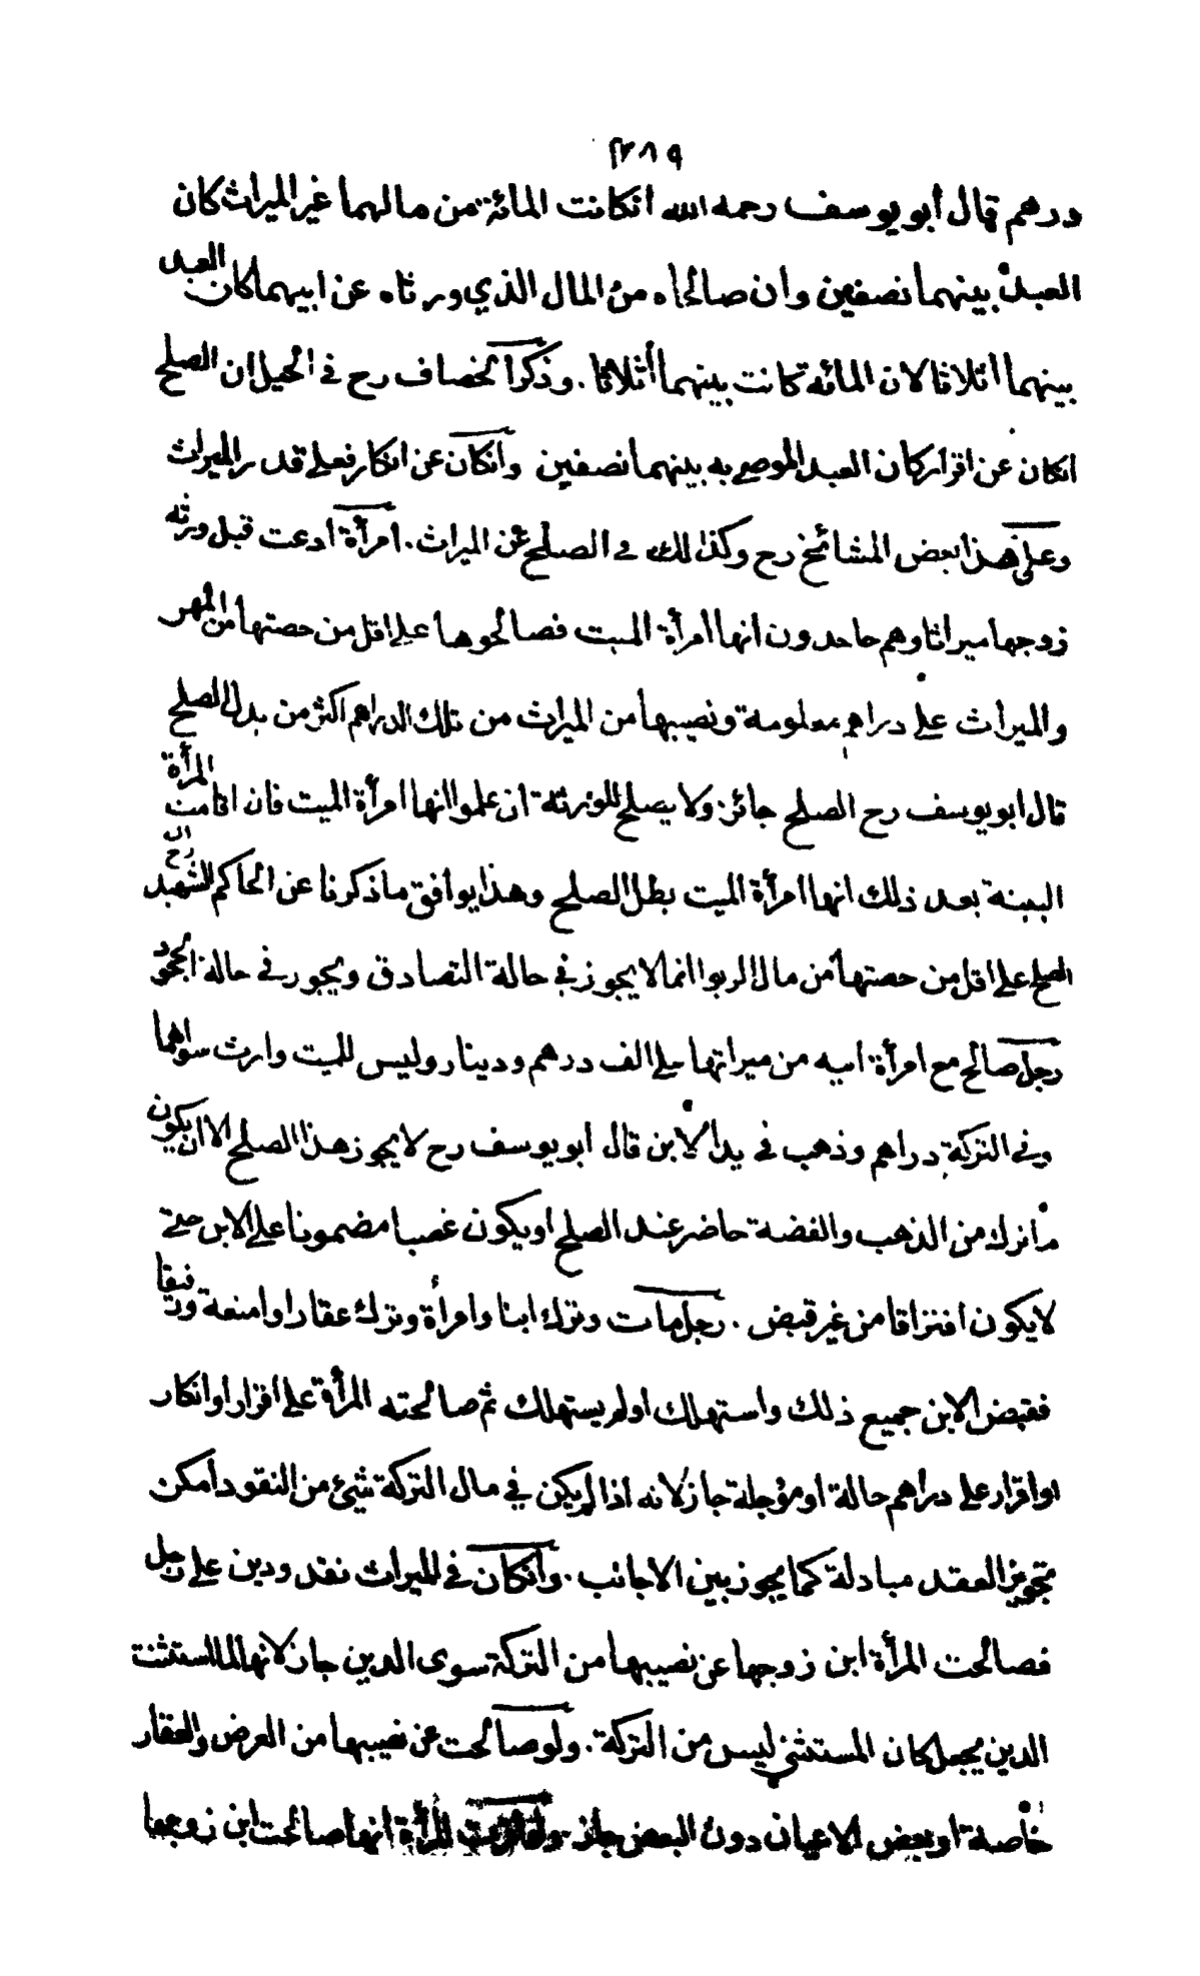 ٢٨٩
درهم قال أبو يوسف رحمه الله انكانت المائة من مالهما غير الميراث كان
العبد بينهما نصفين وان صالحاه من المال الذي ورثاه عن ابيهما كان العبد
بينهما اثلاثا لان المائة كانت بينهما أثلاثا . وذكر الخصاف رح في الحيل ان الصلح
انكان عن اقرار كان العبد الموصى به بينهما نصفين وانكان عن انكار فعلى قدر الميراث
وعلى هذا بعض المشائخ رح وكذلك في الصلح عن الميراث . امرأة ادعت قبل ورثه
زوجها ميراثا وهم جاحدون انها امرأة الميت فصالحوها على اقل من حصتها من المهر
والميراث على دراهم معلومة ونصيبها من الميراث من تلك الدراهم اكثر من بدل الصلح
قال ابو يوسف رح الصلح جائز ولا يصلح للورثة ان علموا انها امرأة الميت فان اقامت المرأة
البينة بعد ذلك انها امرأة الميت بطل الصلح وهذا يوافق ما ذكرنا عن الحاكم الشهيد رح ان
الصلح على اقل من حصتها من مال الربوا انما لا يجوز في حالة التصادق ويجوز في حالة الجحود
رجل صالح مع امرأة ابيه من ميراثها على الف درهم ودينار وليس للميت وارث سواهما
وفي التركة دراهم وذهب في يد الابن قال ابو يوسف رح لا يجوز هذا الصلح الا ان يكون
ما ترك من الذهب والفضة حاضر عند الصلح او يكون غصبا مضمونا على الابن حتى
لا يكون افتراقا من غير قبض . رجل مات وترك ابنا وامرأة وترك عقارا وامتعة ورقيقا
فقبض الابن جميع ذلك واستهلك او لم يستهلك ثم صالحته المرأة على اقرار او انكار
او اقرار على دراهم حالة او مؤجلة جاز لانه اذا لم يكن في مال التركة شيئ من النقود أمكن
تجويز العقد مبادلة كما يجوز بين الاجانب . وانكان في الميراث نقد ودين على رجل
فصالحت المرأة ابن زوجها عن نصيبها من التركة سوى الدين جاز لانها لما استثنت
الدين يجعل كان المستثنى ليس من التركة . ولو صالحت عن نصيبها من العرض والعقار
خاصة او بعض الاعيان دون البعض جاز المرأة انها صالحت ابن زوجها